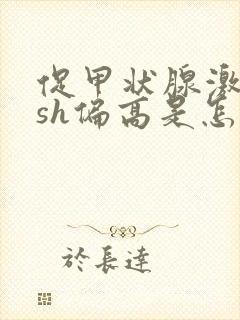 促甲状腺激
sh偏高是怎
於長達